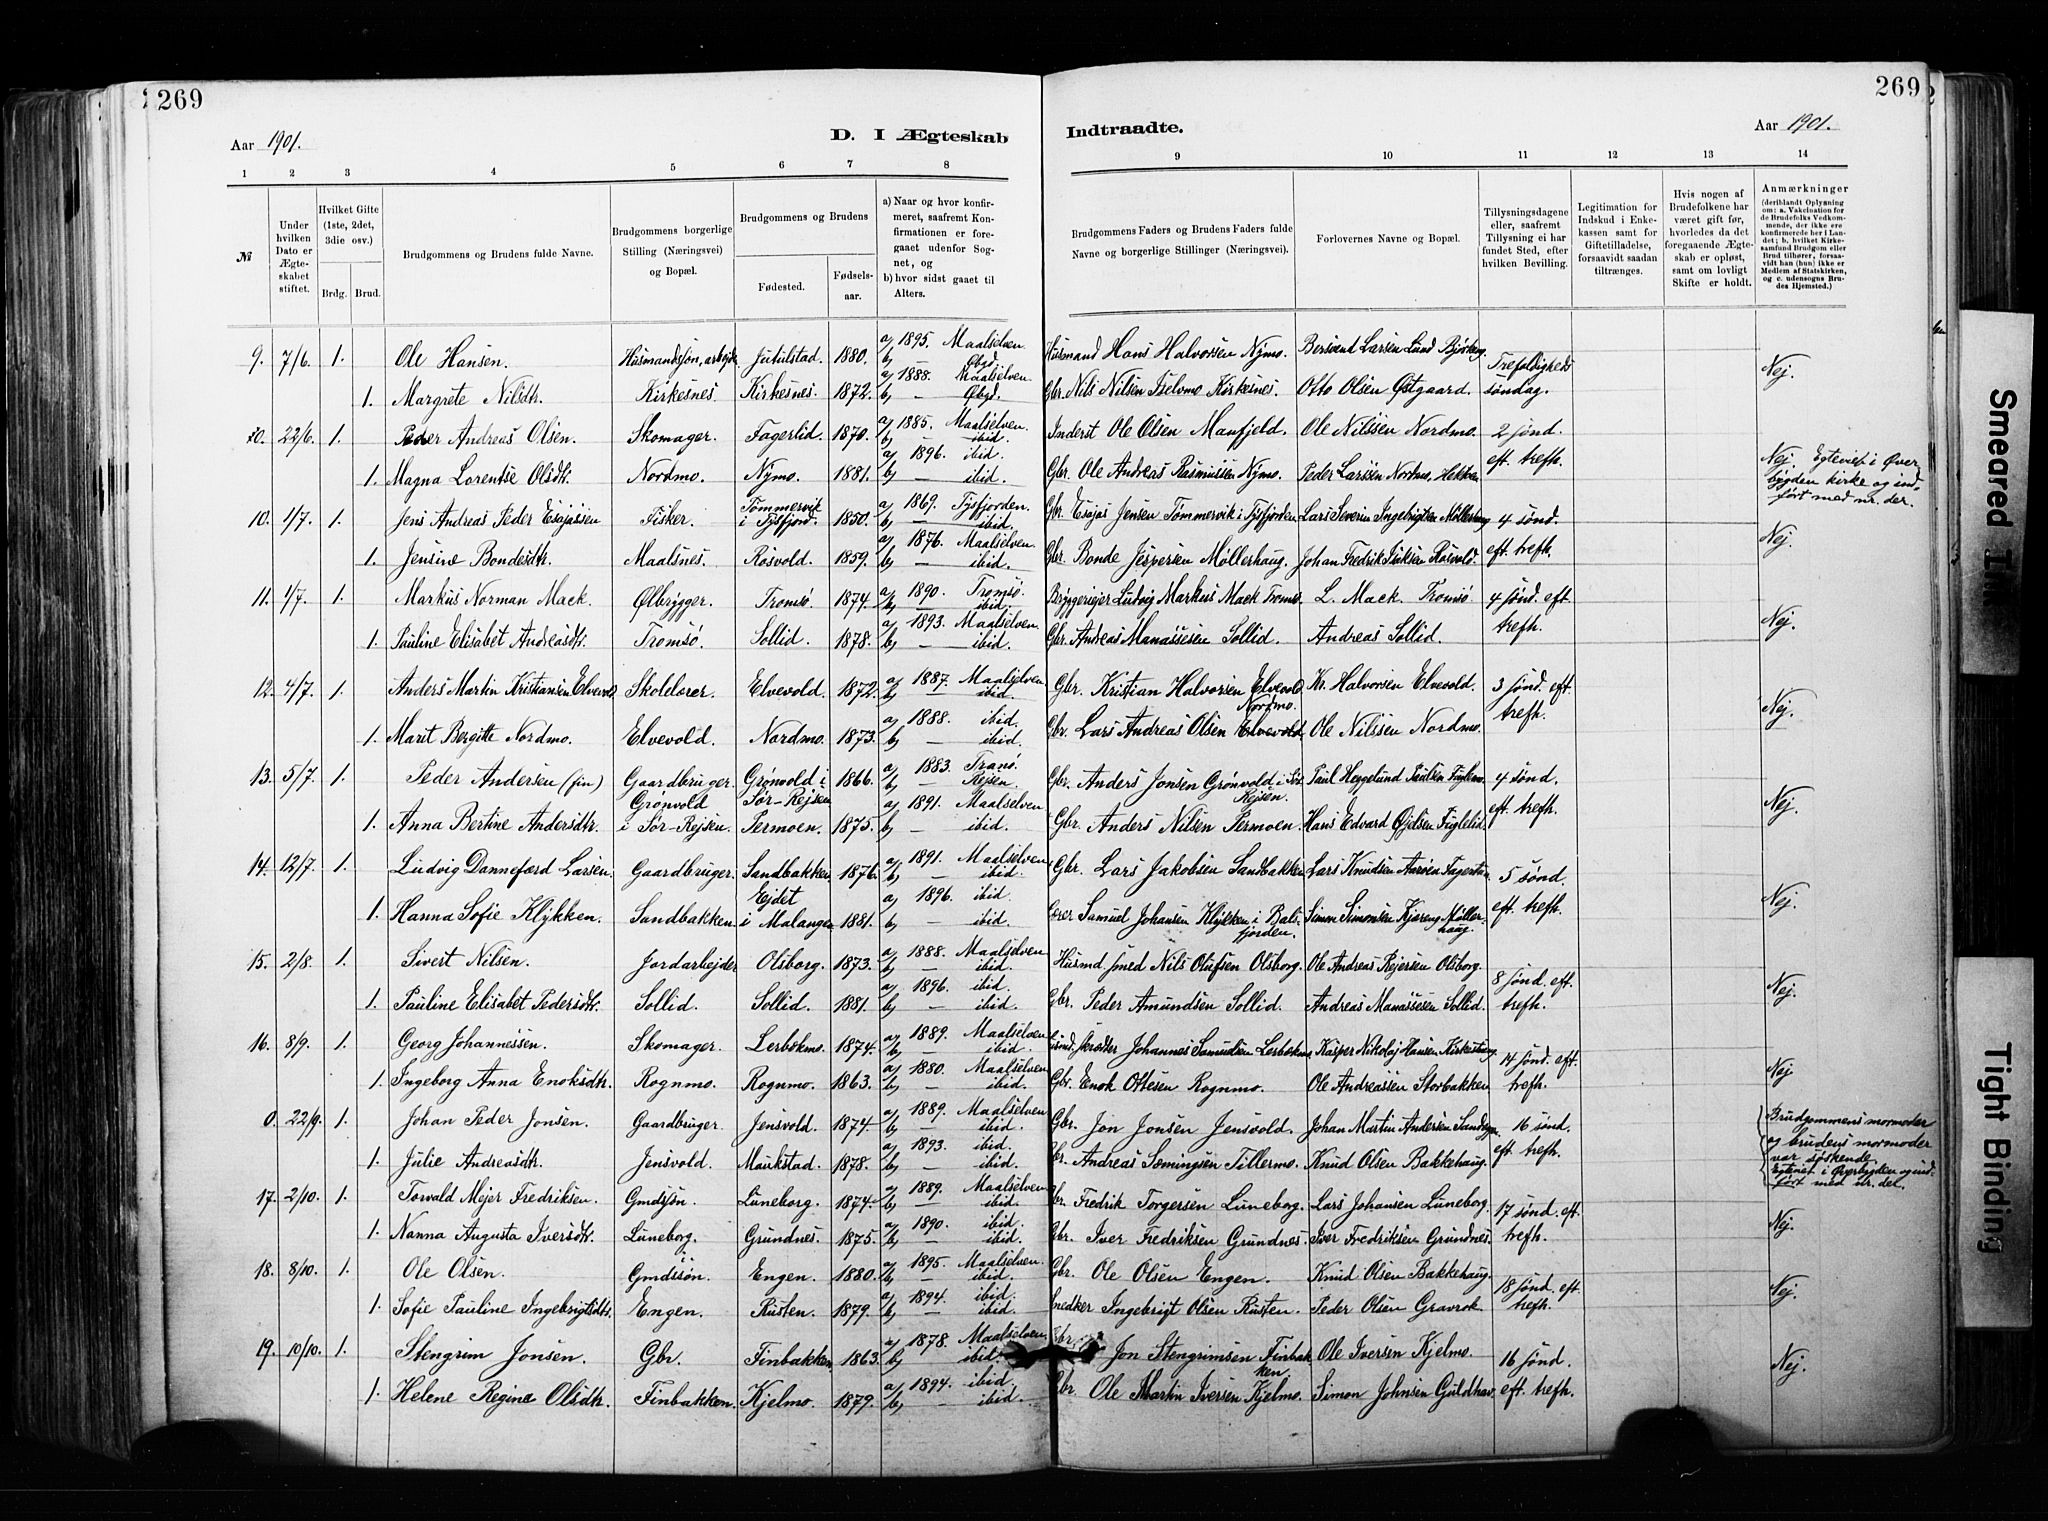 269
269
Aar 1901.
D. I Ægteskab
Indtraadte.
Aar 1901.
1 2 3 4 5 6 7 8 9 10 11 12 13 14
№
Under hvilken Dato er Ægteskabet stiftet.
Hvilket Gifte (1ste, 2det, 3die osv.)
Brdg. Brud.
Brudgommens og Brudens fulde Navne.
Brudgommens borgerlige Stilling (Næringsvei) og Bopæl.
Brudgommens og Brudens
Fødested.
Fødselsaar.
a) Naar og hvor konfirmeret, saafremt Konfirmationen er foregaaet udenfor Sognet, og
b) hvor sidst gaaet til Alters.
Brudgommens Faders og Brudens Faders fulde Navne og borgerlige Stillinger (Næringsvei).
Forlovernes Navne og Bopæl.
Tillysningsdagene eller, saafremt Tillysning ei har fundet Sted, efter hvilken Bevilling.
Legitimation for Indskud i Enkekassen samt for Giftetilladelse, forsaavidt saadan tiltrænges.
Hvis nogen af Brudefolkene har været gift før, hvorledes da det foregaaende Ægteskab er opløst, samt om lovligt Skifte er holdt.
Anmærkninger (deriblandt Oplysning om: a. Vakcination for de Brudefolks Vedkommende, der ikke ere konfirmerede her i Landet; b. hvilket Kirkesamfund Brudgom eller Brud tilhører, forsaavidt han (hun) ikke er Medlem af Statskirken, og c. udensogns Brudes Hjemsted.)
9. 7/6. 1. Ole Hansen. Husmandssøn, arbejder Jutulstad. 1880. a) 1895. Maalselven b) — Øbyd. Husmand Hans Halvorsen Nymo. Bersvend Larsen Lund Bjørkeng. Trefoldigheds Nej.
1. Margrete Nilsdtr. Kirkesnes. Kirkesnes. 1872. a) 1888. Maalselven b) — Øbyd. Gbr. Nils Nilsen Iselvmo Kirkesnes. Otto Olsen Østgaard. søndag.
0. 22/6. 1. Peder Andreas Olsen. Skomager. Fagerlid. 1870. a) 1885. Maalselven b) — ibid. Inderst Ole Olsen Manfjeld. Ole Nilssen Nordmo. 2 sønd.
1. Magna Lorentse Olsdtr. Nordmo. Nymo. 1881. a) 1896. ibid. b) — ibid. Gbr. Ole Andreas Rasmussen Nymo. Peder Larssen Nordmo, eft. trefh. Nej. Egteviet i Øverbygden kirke og indført med nr. der.
10. 1/7. 1. Jens Andreas Peder Esajassen Fisker. Tømmervik i Tysfjord. 1850. a) 1869. Tysfjorden b) — ibid. Gbr. Esajas Jensen Tømmervik i Tysfjorden Lars Severin Ingebrigtsen Møllerhaug 4 sønd.
1. Jensine Bondesdtr. Maalsnes. Rosvold. 1859. a) 1876. Maalselven. b) — ibid. Gbr. Bonde Jespersen Møllerhaug. Johan Fredrik Isaksen Rosvold. eft. trefh. Nej.
11. 1/7. 1. Markus Norman Mack. Ølbrygger. Tromsø. 1874. a) 1890. Tromsø. b) — ibid. Bryggeriejer Ludvig Markus Mack Tromsø. L. Mack. Tromsø 4 sønd. eft.
1. Pauline Elisabet Andreasdtr. Tromsø. Sollid. 1878. a) 1893. Maalselven b) — ibid. Gbr. Andreas Manassesen Sollid. Andreas Sollid. trefh. Nej.
12. 4/7. 1. Anders Martin Kristiansen Elvevold Skolelærer. Elvevold. 1872. a) 1887. Maalselven b) — ibid. Gbr. Kristian Halvorsen Elvevold Kr. Halvorsen Elvevold. 3 sønd. eft.
1. Marit Bergitte Nordmo. Elvevold. Nordmo. 1873. a) 1888. ibid. b) — ibid. Gbr. Lars Andreas Olsen Elvevold Nordmo. Ole Nilssen Nordmo. trefh. Nej.
13. 5/7. 1. Peder Andersen (fin) Gaardbruger. Grønvold i Sør-Rejsen 1866. a) 1883. Tranø. b) — Rejsen. Gbr. Anders Jonsen Grønvold i Sør Rejsen. Paul Heggelund Paulsen Fuglemo 4 sønd.
1. Anna Bertine Andersdtr. Grønvold i Sør-Rejsen. Permoen. 1875. a) 1891. Maalselven b) — ibid. Gbr. Anders Nilsen Permoen. Hans Edvard Øjelsen Fuglelid. eft. trefh. Nej.
14. 12/7. 1. Ludvig Danneferd Larsen. Gaardbruger. Sandbakken 1876. a) 1891. Maalselven b) — ibid. Gbr. Lars Jakobsen Sandbakken Lars Knudsen Aarøen 5 sønd.
1. Hanna Sofie Klykken. Sandbakken. Ejdet i Malangen 1881. a) 1896. ibid. b) — ibid. Lærer Samuel Johansen Klykken i Balsfjorden. Simon Simonsen Kjereng Møllerhaug. eft. trefh. Nej.
15. 2/8. 1. Sivert Nilsen. Jordarbejder Olsborg. 1873. a) 1888. Maalselven b) — ibid. Husmd smed Nils Olufsen Olsborg. Ole Andreas Rejersen Olsborg. 8 sønd. eft.
1. Pauline Elisabet Pedersdtr. Sollid. Sollid. 1881. a) 1896. ibid. b) — ibid. Gbr. Peder Amundsen Sollid. Andreas Manassesen Sollid. trefh. Nej.
16. 8/9. 1. Georg Johannessen. Skomager. Lerbækmo. 1874. a) 1889. Maalselven b) — ibid. Skrædder Johannes Samuelsen Lerbækmo Kasper Nikolaj Hansen 14 sønd. eft.
1. Ingeborg Anna Enoksdtr. Rognmo. Rognmo. 1863. a) 1880. Maalselven b) — ibid. Gbr. Enok Ottesen Rognmo. Ole Andreassen Storbakken trefh. Nej
0. 22/9. 1. Johan Peder Jonsen. Gaardbruger Jensvold. 1874. a) 1889. Maalselven b) — ibid. Gbr. Jon Jonsen Jensvold. Johan Martin Andersen 16 sønd.
1. Julie Andreasdtr. Jensvold. Maukstad. 1878. a) 1893. ibid. b) — ibid. Gbr. Andreas Sæmingsen Tillermo. Knud Olsen Bakkehaug. eft. trefh. Brudgommens mormoder og brudens mormoder var søskende. Egteviet i Øverbygden og indført med nr. der.
17. 2/10. 1. Torvald Mejer Fredriksen. Gmdssøn. Luneborg. 1874. a) 1889. Maalselven b) — ibid. Gbr. Fredrik Torgersen Luneborg. Lars Johansen Luneborg. 17 sønd. eft.
1. Nanna Augusta Iversdtr. Luneborg. Grundnes. 1875. a) 1890. ibid. b) — ibid. Gbr. Iver Fredriksen Grundnes. Iver Fredriksen Grundnes. trefh. Nej.
18. 8/10. 1. Ole Olsen. Gmdssøn. Engen. 1880. a) 1895. Maalselven. b) — ibid. Gbr. Ole Olsen Engen. Knud Olsen Bakkehaug. 18 sønd. eft.
1. Sofie Pauline Ingebrigtsdtr. Engen. Rusten. 1879. a) 1894. ibid. b) — ibid. Snedker Ingebrigt Olsen Rusten. Peder Olsen Gravrok. trefh. Nej.
19. 10/10. 1. Stengrim Jonsen. Gbr. Finbakken 1863. a) 1878. Maalselven b) ibid. Gbr. Jon Stengrimsen Finbakken Ole Iversen Kjelmo. 16 sønd.
1. Helene Regine Olsdtr. Finbakken. Kjelmo. 1879. a) 1894. ibid. b) — ibid. Gbr Ole Martin Iversen Kjelmo. Simon Johnsen Guldhav. eft. trefh. Nej.
Smeared Ink
Tight Binding